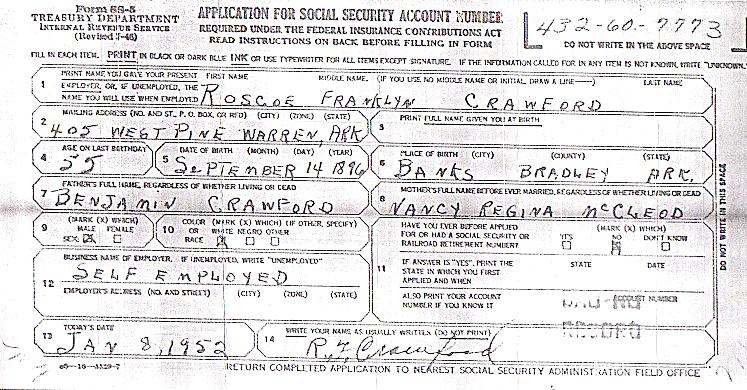 Form SS-5
TREASURY DEPARTMENT
INTERNAL REVENUE SERVICE
(Revised 7-46)
APPLICATION FOR SOCIAL SECURITY ACCOUNT NUMBER
REQUIRED UNDER THE FEDERAL INSURANCE CONTRIBUTIONS ACT
READ INSTRUCTIONS ON BACK BEFORE FILLING IN FORM
432-60-7773
DO NOT WRITE IN THE ABOVE SPACE
FILL IN EACH ITEM. PRINT IN BLACK OR DARK BLUE INK OR USE TYPEWRITER FOR ALL ITEMS EXCEPT SIGNATURE. IF THE INFORMATION CALLED FOR IN ANY ITEM IS NOT KNOWN, WRITE "UNKNOWN."
1 PRINT NAME YOU GAVE YOUR PRESENT FIRST NAME MIDDLE NAME, (IF YOU USE NO MIDDLE NAME OR INITIAL, DRAW A LINE—) LAST NAME
EMPLOYER, OR, IF UNEMPLOYED, THE
NAME YOU WILL USE WHEN EMPLOYED ROSCOE FRANKLYN CRAWFORD
2 MAILING ADDRESS (NO. AND ST., P. O. BOX, OR RFD) (CITY) (ZONE) (STATE)
405 WEST PINE WARREN, ARK
3 PRINT FULL NAME GIVEN YOU AT BIRTH
4 AGE ON LAST BIRTHDAY
55
5 DATE OF BIRTH (MONTH) (DAY) (YEAR)
SEPTEMBER 14 1896
6 PLACE OF BIRTH (CITY) (COUNTY) (STATE)
BANKS BRADLEY ARK.
7 FATHER'S FULL NAME, REGARDLESS OF WHETHER LIVING OR DEAD
BENJAMIN CRAWFORD
8 MOTHER'S FULL NAME BEFORE EVER MARRIED, REGARDLESS OF WHETHER LIVING OR DEAD
NANCY REGINA McCLEOD
9 (MARK (X) WHICH)
MALE FEMALE
SEX: X
10 COLOR (MARK (X) WHICH) (IF OTHER, SPECIFY)
OR WHITE NEGRO OTHER
RACE X
11 HAVE YOU EVER BEFORE APPLIED (MARK (X) WHICH)
FOR OR HAD A SOCIAL SECURITY OR YES NO DON'T KNOW
RAILROAD RETIREMENT NUMBER? X
IF ANSWER IS "YES", PRINT THE STATE DATE
STATE IN WHICH YOU FIRST
APPLIED AND WHEN
ALSO PRINT YOUR ACCOUNT ACCOUNT NUMBER
NUMBER IF YOU KNOW IT
RECORD
12 BUSINESS NAME OF EMPLOYER. IF UNEMPLOYED, WRITE "UNEMPLOYED"
SELF EMPLOYED
EMPLOYER'S ADDRESS (NO. AND STREET) (CITY) (ZONE) (STATE)
13 TODAY'S DATE
JAN 8, 1952
14 WRITE YOUR NAME AS USUALLY WRITTEN (DO NOT PRINT)
R. F. Crawford
DO NOT WRITE IN THIS SPACE
RETURN COMPLETED APPLICATION TO NEAREST SOCIAL SECURITY ADMINISTRATION FIELD OFFICE